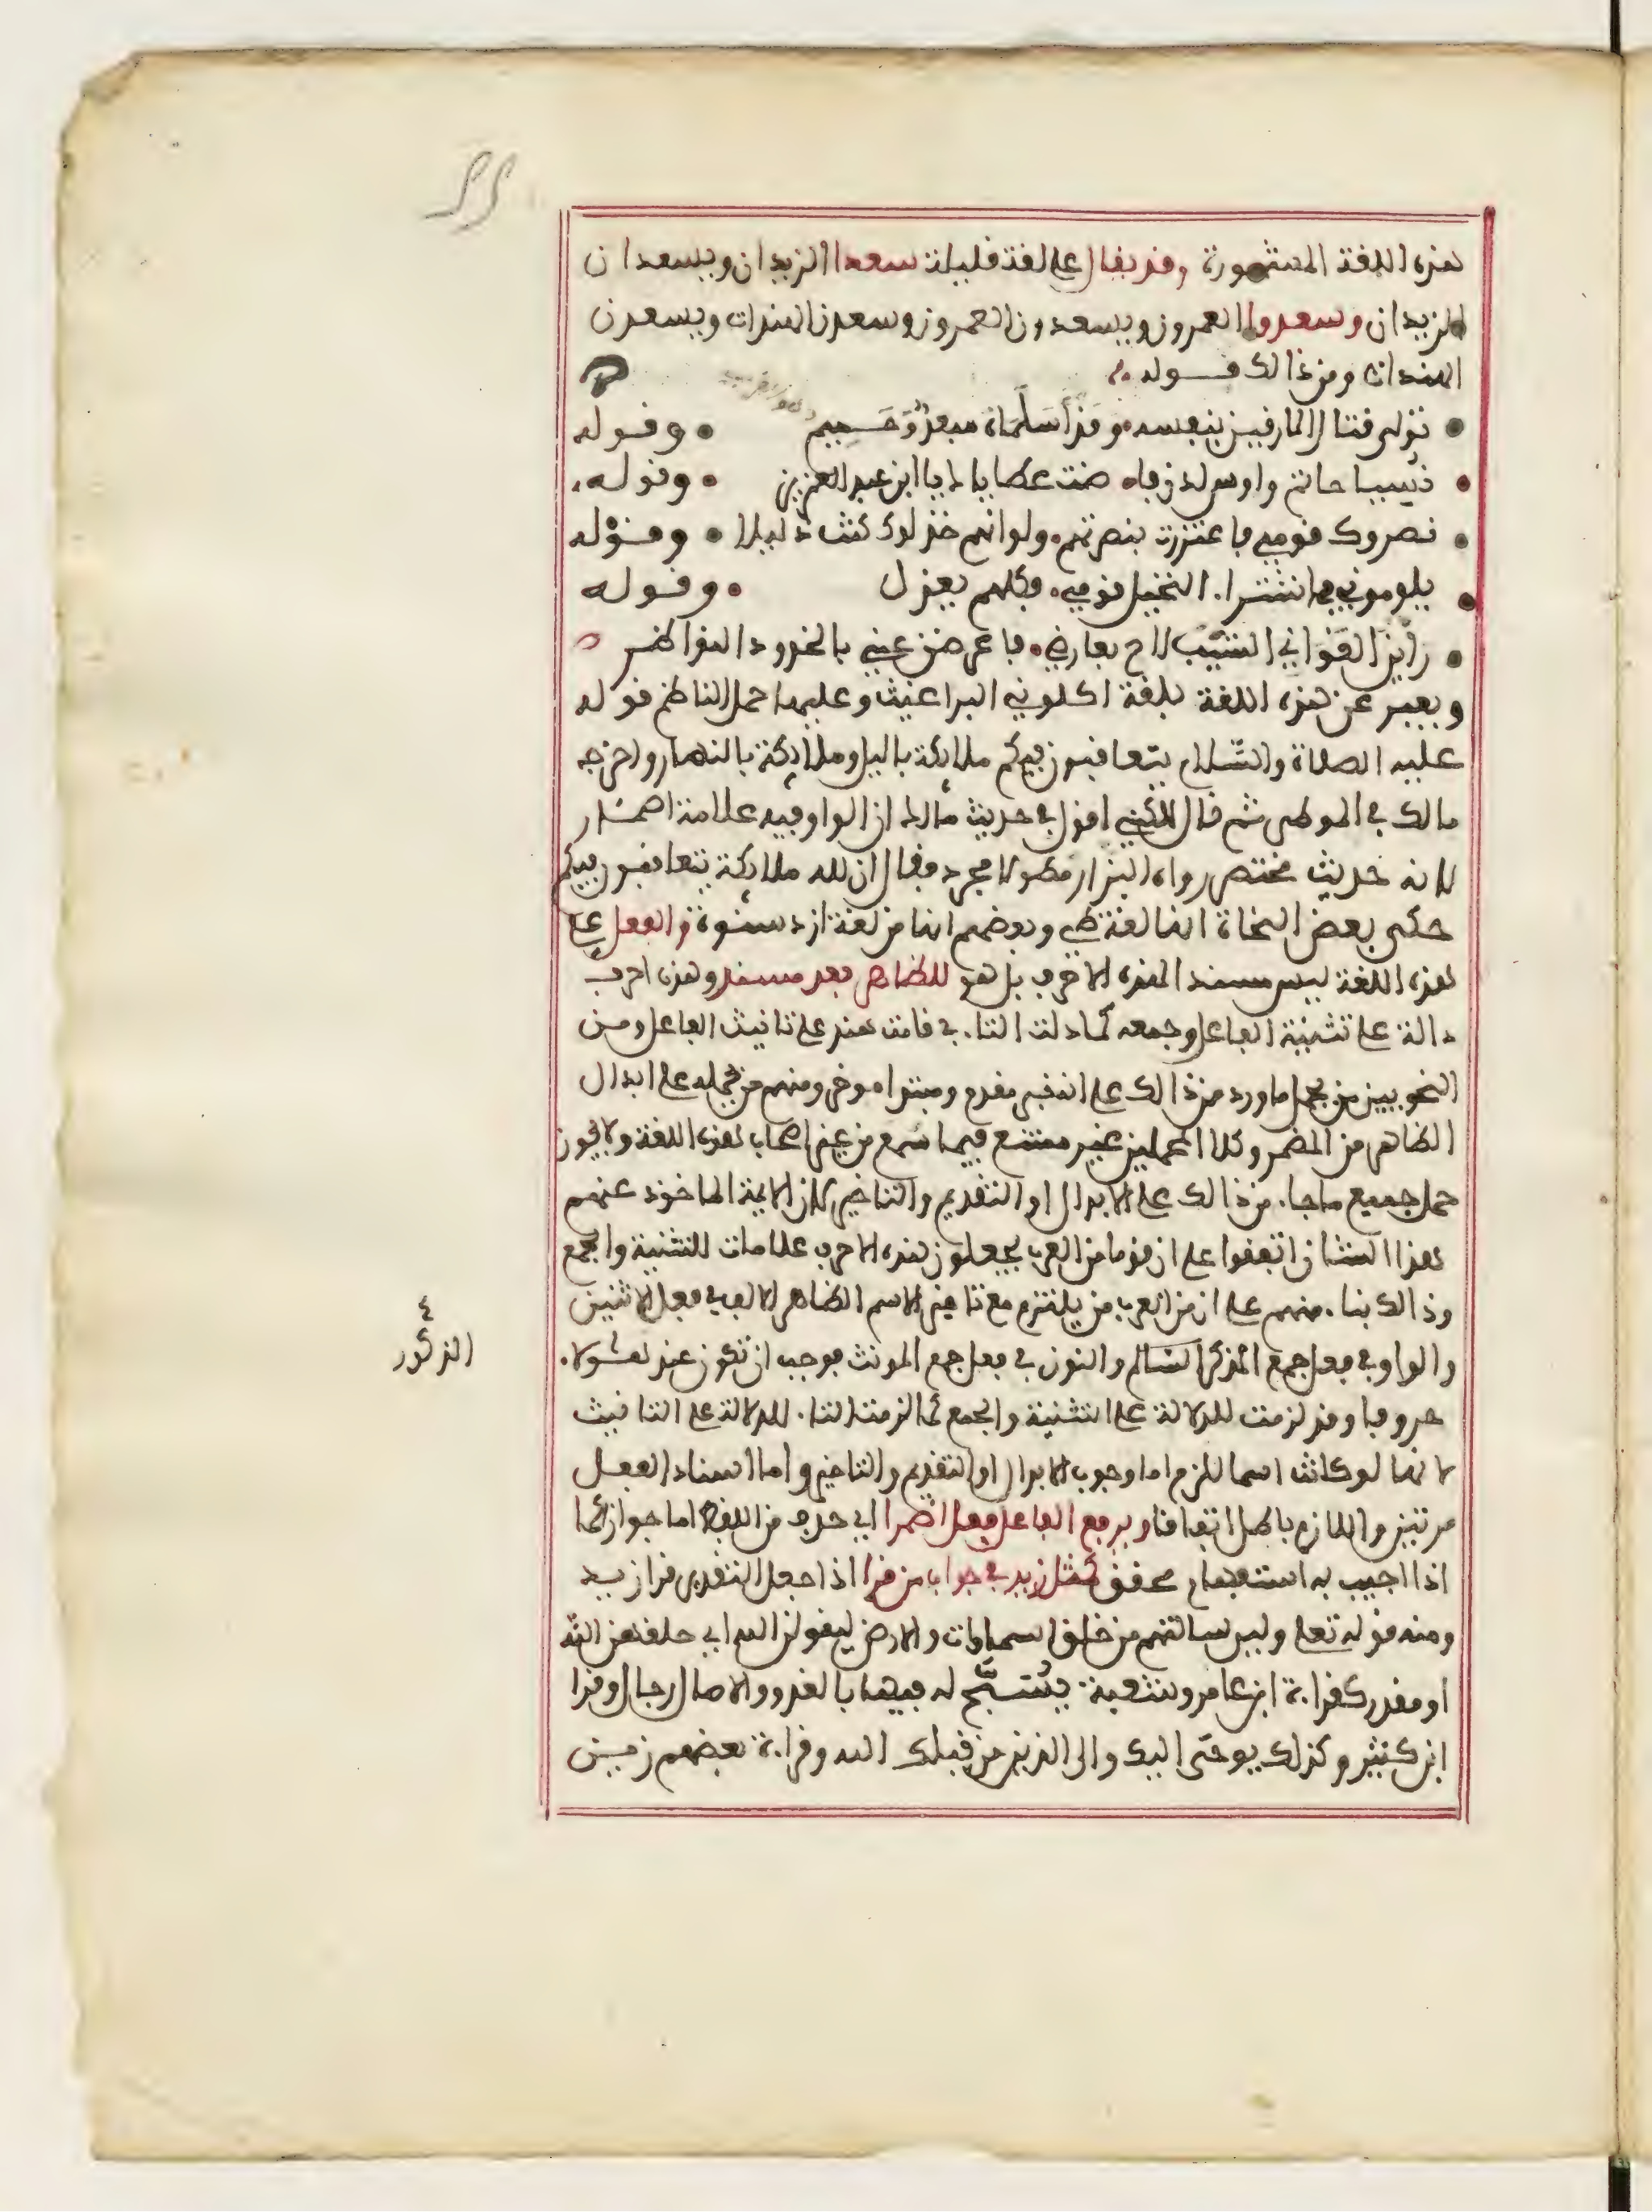 هذه اللغة المشهورة وقد يقال على لغة قليلة سعدا الزيدان ويسعدان
الزيدان وسعدوا العمرون ويسعدون العمرون وسعدن الهندات ويسعدن
الهندات ومن ذالك قوله
تولى قتال المارقين بنفسه • وقد أسلماه مبعد وحميم • وقوله
نسيا حاتم واوس لدن فاضت عطاياك يا ابن عبد العزيز • وقوله
نصروك قومي فاعتززت بنصرهم • ولو انهم خذلوك كنت ذليلا • وقوله
يلومونني في اشتراء النخيل قومي • فكلهم يعزل • وقوله
رأين الغواني الشيب لاح بعارضي • فاعرضن عني بالخدود النواضر
ويعبر عن هذه اللغة بلغة اكلوني البراغيث وعليها حمل الناظم قوله
عليه الصلاة والسلام يتعاقبون فيكم ملائكة باليل وملائكة بالنهار واخرجه
مالك في الموطى ثم قال لكنني اقول في حديث مالك ان الواو فيه علامة اضمار
لانه حديث مختصر رواه البزار مطولا مجردا فقال ان لله ملائكة يتعاقبون فيكم
حكى بعض النحاة انها لغة طي وبعضهم انها من لغة ازد شنوة والفعل على
هذه اللغة ليس مسندا لهذه الاحرف بل هو للظاهر بعد مسند وهذه احرف
دالة على تثنية الفاعل وجمعه كما دلت التاء في قامت هند على تانيث الفاعل ومن
النحويين من يحمل ما ورد من ذالك على انه خبر مقدم ومبتدا موخر ومنهم من يحمله على ابدال
الظاهر من المضمر وكلا الحملين غير ممتنع فيما سمع من غير اصحاب هذه اللغة ولا يجوز
حمل جميع ما جاء من ذالك على الابدال او التقديم والتاخير لان الايمة الماخوذ عنهم
هذا الشان اتفقوا على ان قوما من العرب يجعلون هذه الاحرف علامات للتثنية والجمع
وذالك بناء منهم على ان من العرب من يلتزم مع تاخير الاسم الظاهر الالف في فعل الاثنين
والواو في فعل جمع المذكر السالم والنون في فعل جمع المونث فوجب ان تكون عند هؤلاء
حروفا وقد لزمت للدلالة على التثنية والجمع كما لزمت التاء للدلالة على التانيث
لانها لو كانت اسما للزم اما وجوب الابدال او التقديم والتاخير واما اسناد الفعل
مرتين واللازم باطل اتفاقا ويرفع الفاعل فعل اضمرا اي حذف من اللفظ اما جوازا كما
اذا اجيب به استفهام محقق كمثل زيد في جواب من قرا اذا جعل التقدير قرا زيد
ومنه قوله تعلى ولين سالتهم من خلق السماوات والارض ليقولن الله اي خلقهن الله
او مقدر كقراءة ابن عامر وشعبة يسبح له فيها بالغدو والاصال رجال وقرا
ابن كثير وكذلك يوحى اليك والى الذين من قبلك الله وقراءة بعضهم زين
الذكور